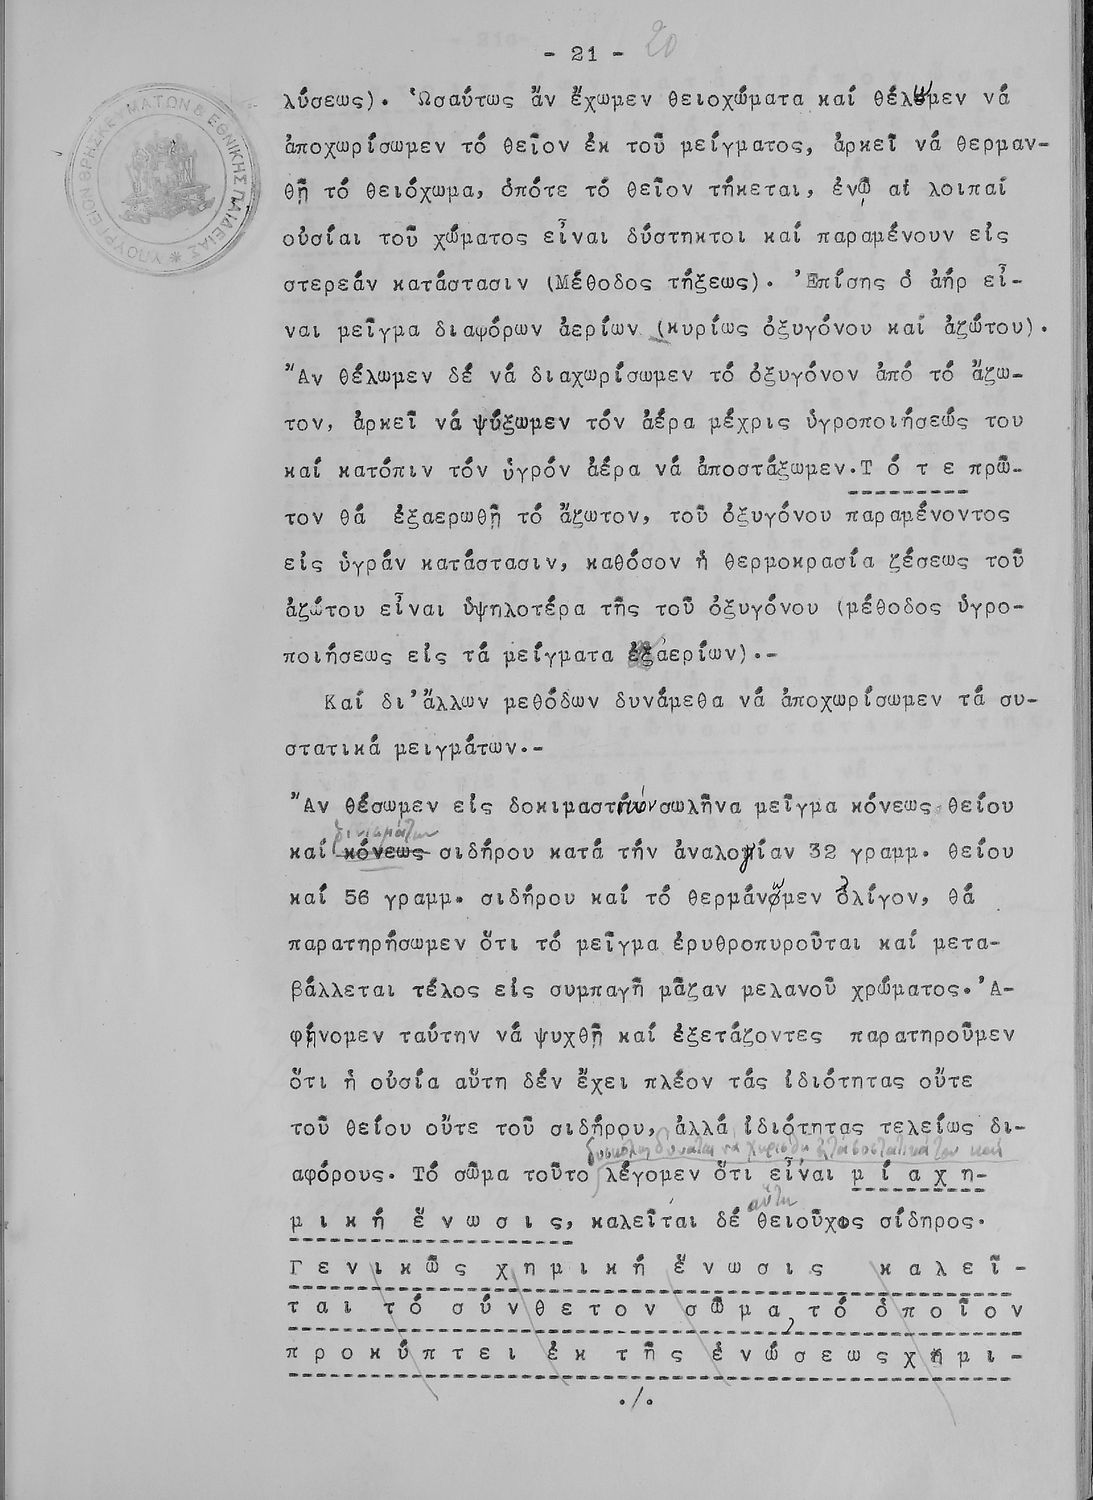 - 21 - 20
ΥΠΟΥΡΓΕΙΟΝ ΘΡΗΣΚΕΥΜΑΤΩΝ & ΕΘΝΙΚΗΣ ΠΑΙΔΕΙΑΣ
λύσεως). Ὡσαύτως ἄν ἔχωμεν θειοχώματα καί θέλωμεν νά
ἀποχωρίσωμεν τό θεῖον ἐκ τοῦ μείγματος, ἀρκεῖ νά θερμαν-
θῇ τό θειόχωμα, ὁπότε τό θεῖον τήκεται, ἐνῷ αἱ λοιπαί
οὐσίαι τοῦ χώματος εἶναι δύστηκτοι καί παραμένουν εἰς
στερεάν κατάστασιν (Μέθοδος τήξεως). Ἐπίσης ὁ ἀήρ εἶ-
ναι μεῖγμα διαφόρων ἀερίων (κυρίως ὀξυγόνου καί ἀζώτου).
Ἄν θέλωμεν δέ νά διαχωρίσωμεν τό ὀξυγόνον ἀπό τό ἄζω-
τον, ἀρκεῖ νά ψύξωμεν τόν ἀέρα μέχρις ὑγροποιήσεώς του
καί κατόπιν τόν ὑγρόν ἀέρα νά ἀποστάξωμεν.Τ ό τ ε πρῶ-
τον θά ἐξαερωθῇ τό ἄζωτον, τοῦ ὀξυγόνου παραμένοντος
εἰς ὑγράν κατάστασιν, καθόσον ἡ θερμοκρασία ζέσεως τοῦ
ἀζώτου εἶναι ὑψηλοτέρα τῆς τοῦ ὀξυγόνου (μέθοδος ὑγρο-
ποιήσεως εἰς τά μείγματα ἐξ ἀερίων).-
Καί δι' ἄλλων μεθόδων δυνάμεθα νά ἀποχωρίσωμεν τά συ-
στατικά μειγμάτων.-
Ἄν θέσωμεν εἰς δοκιμαστικόν σωλῆνα μεῖγμα κόνεως θείου
ῥινισμάτων
καί κόνεως σιδήρου κατά τήν ἀναλογίαν 32 γραμμ. θείου
καί 56 γραμμ. σιδήρου καί τό θερμάνωμεν ὀλίγον, θά
παρατηρήσωμεν ὅτι τό μεῖγμα ἐρυθροπυροῦται καί μετα-
βάλλεται τέλος εἰς συμπαγῆ μᾶζαν μελανοῦ χρώματος. Ἀ-
φήνομεν ταύτην νά ψυχθῇ καί ἐξετάζοντες παρατηροῦμεν
ὅτι ἡ οὐσία αὕτη δέν ἔχει πλέον τάς ἰδιότητας οὔτε
τοῦ θείου οὔτε τοῦ σιδήρου, ἀλλά ἰδιότητας τελείως δι-
δυσκόλως δύναται νά χωρισθῇ τά συστατικά του καί
αφόρους. Τό σῶμα τοῦτο λέγομεν ὅτι εἶναι μ ί α χ η-
αὕτη
μ ι κ ή ἕ ν ω σ ι ς, καλεῖται δέ θειοῦχος σίδηρος.
Γ ε ν ι κ ῶ ς χ η μ ι κ ή ἕ ν ω σ ι ς κ α λ ε ῖ -
τ α ι τ ό σ ύ ν θ ε τ ο ν σ ῶ μ α, τ ό ὁ π ο ῖ ο ν
π ρ ο κ ύ π τ ε ι ἐ κ τ ῆ ς ἑ ν ώ σ ε ω ς χ η μ ι -
./.